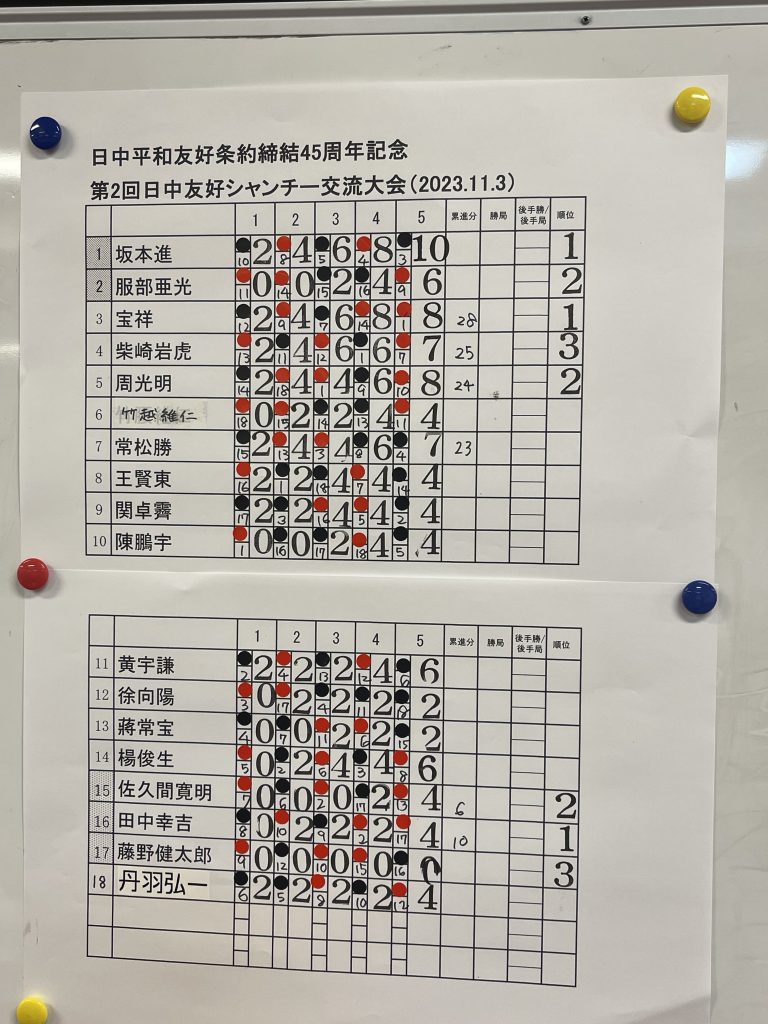 日中平和友好条約締結45周年記念
第2回日中友好シャンチー交流大会（2023.11.3）
1 2 3 4 5 累進分 勝局 後手勝/後手局 順位
1 坂本進 10 2 8 4 5 6 4 8 3 10 1
2 服部亜光 11 0 14 0 15 2 16 4 9 6 2
3 宝祥 12 2 9 4 7 6 14 8 1 8 28 1
4 柴崎岩虎 13 2 11 4 12 6 1 6 7 7 25 3
5 周光明 14 2 18 4 1 4 9 6 10 8 24 2
6 竹越維仁 18 0 15 2 14 2 13 4 11 4
7 常松勝 15 2 13 4 3 4 8 6 4 7 23
8 王賢東 16 2 1 2 18 4 7 4 14 4
9 関卓霽 17 2 3 2 16 4 5 4 2 4
10 陳鵬宇 1 0 16 0 17 2 18 4 5 4
1 2 3 4 5 累進分 勝局 後手勝/後手局 順位
11 黄宇謙 2 2 4 2 13 2 12 4 6 6
12 徐向陽 3 0 17 2 4 2 11 2 18 2
13 蔣常宝 4 0 7 0 11 2 6 2 15 2
14 楊俊生 5 0 2 2 6 4 3 4 8 6
15 佐久間寛明 7 0 6 0 2 0 17 2 13 4 6 2
16 田中幸吉 8 0 10 2 9 2 2 2 17 4 10 1
17 藤野健太郎 9 0 12 0 10 0 15 0 16 0 3
18 丹羽弘一 6 2 5 2 8 2 10 2 12 4